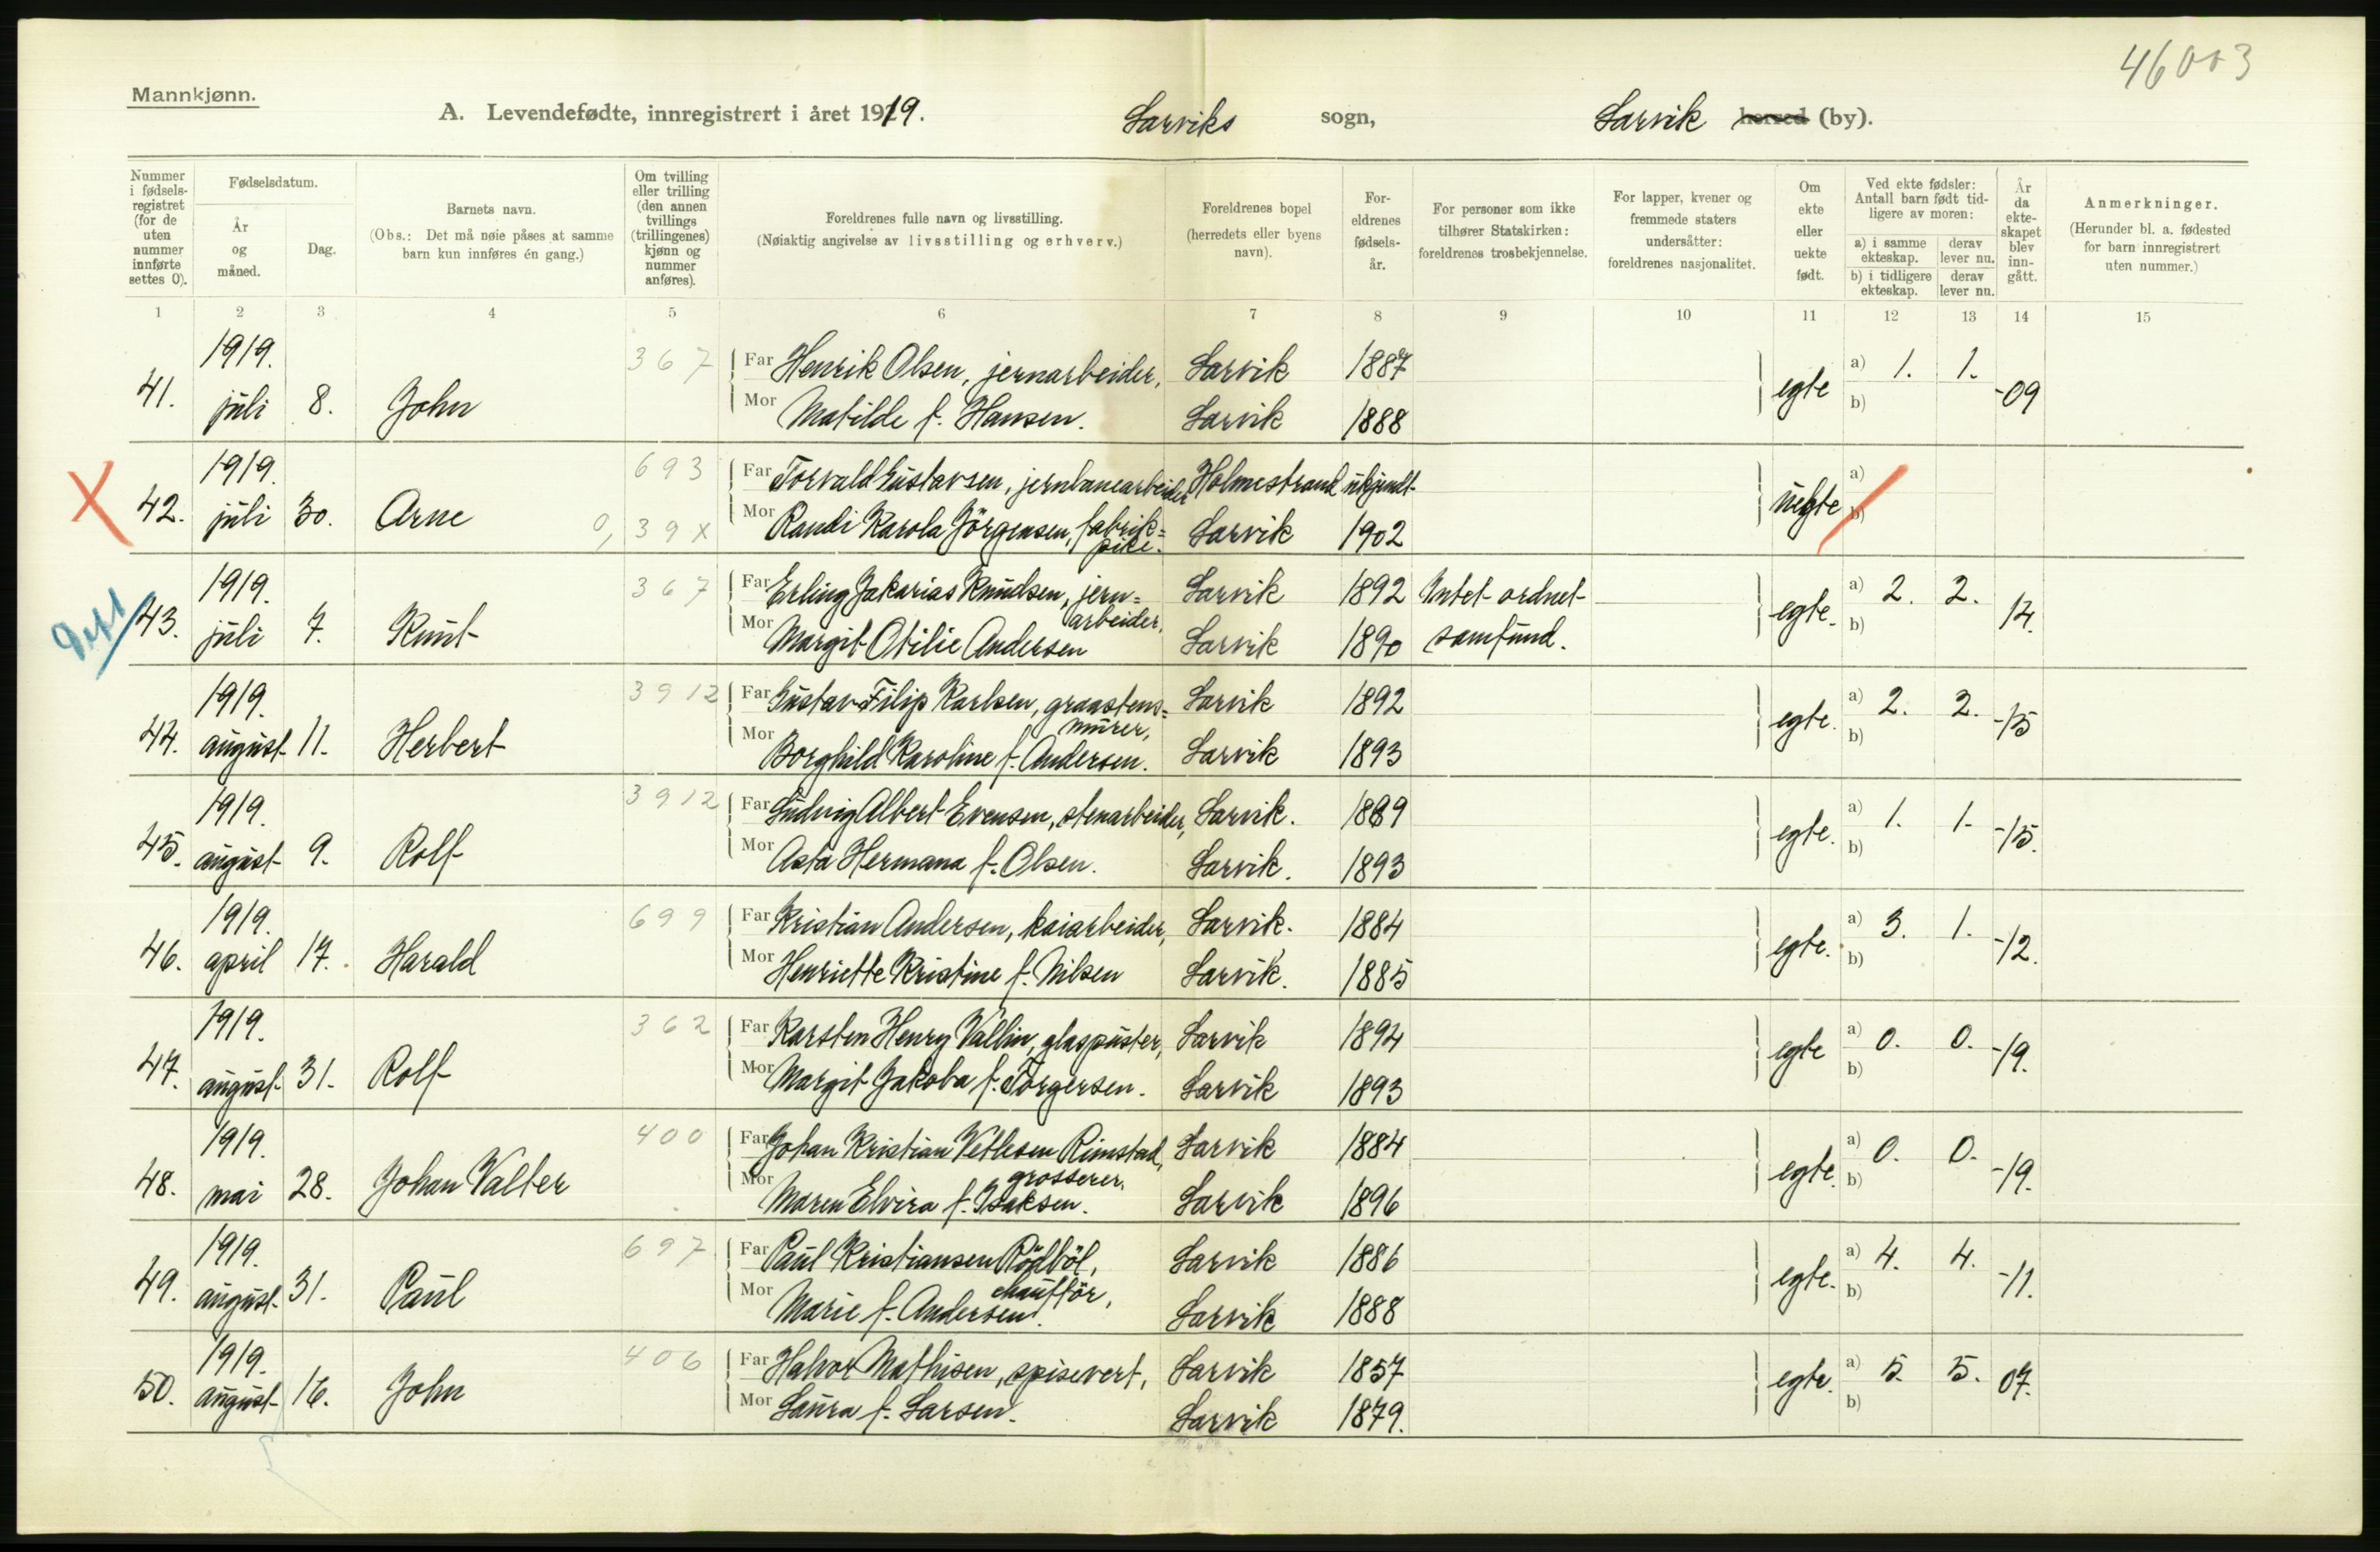 46003
Mannkjønn.
A. Levendefødte, innregistrert i året 1919. Larviks sogn, Larvik herred (by).
Nummer i fødselsregistret (for de uten nummer innførte settes 0).
Fødselsdatum.
År og måned.
Dag.
Barnets navn.
(Obs.: Det må nøie påses at samme barn kun innføres én gang.)
Om tvilling eller trilling (den annen tvillings (trillingenes) kjønn og nummer anføres).
Foreldrenes fulle navn og livsstilling.
(Nøiaktig angivelse av livsstilling og erhverv.)
Foreldrenes bopel (herredets eller byens navn).
Foreldrenes fødselsår.
For personer som ikke tilhører Statskirken: foreldrenes trosbekjennelse.
For lapper, kvener og fremmede staters undersåtter: foreldrenes nasjonalitet.
Om ekte eller uekte født.
Ved ekte fødsler: Antall barn født tidligere av moren:
a) i samme ekteskap. derav lever nu.
b) i tidligere ekteskap. derav lever nu.
År da ekteskapet blev inngått.
Anmerkninger.
(Herunder bl. a. fødested for barn innregistrert uten nummer.)
1 2 3 4 5 6 7 8 9 10 11 12 13 14 15
41. 1919. juli 8. John 367 Far Henrik Olsen, jernarbeider, Larvik 1887 egte a) 1. 1. -09
Mor Matilde f. Hansen. Larvik 1888 b)
X 42. 1919. juli 30. Arne 693 Far Torvald Gustavsen, jernbanearbeider Holmestrand ukjendt uegte a)
0, 39X Mor Randi Karola Jörgensen, fabrik=pike. Larvik 1902 b)
43. 1919. juli 7. Knut 367 Far Erling Zakarias Knudsen, jern=arbeider, Larvik 1892 Intet ordnet egte. a) 2. 2. 14.
Mor Margit Otilie Andersen Larvik 1890 samfund. b)
44. 1919. august 11. Herbert 3912 Far Gustav Filip Karlsen, graastens=murer, Larvik 1892 egte. a) 2. 2. -15
Mor Borghild Karoline f. Andersen. Larvik 1893 b)
45. 1919. august 9. Rolf 3912 Far Ludvig Albert Evensen, stenarbeider, Larvik. 1889 egte. a) 1. 1. -15.
Mor Asta Hermana f. Olsen. Larvik. 1893 b)
46. 1919. april 17. Harald 699 Far Kristian Andersen, kaiarbeider, Larvik. 1884 egte. a) 3. 1. -12.
Mor Henriette Kristine f. Nilsen Larvik. 1885 b)
47. 1919. august 31. Rolf 362 Far Karsten Henry Vallin, glaspuster, Larvik 1894 egte a) 0. 0. -19.
Mor Margit Jakoba f. Torgersen. Larvik 1893 b)
48. 1919. mai 28. Johan Valter 400 Far Johan Kristian Vetlesen Rimstad, grosserer, Larvik 1884 egte. a) 0. 0. -19.
Mor Maren Elvira f. Isaksen. Larvik 1896 b)
49. 1919. august 31. Paul 697 Far Paul Kristiansen Rödböl, chaufför, Larvik 1886 egte. a) 4. 4. -11.
Mor Marie f. Andersen. Larvik 1888 b)
50. 1919. august 16. John 406 Far Halvor Mathisen, spisevert, Larvik 1857 egte. a) 5. 5. 07.
Mor Laura f. Larsen. Larvik 1879. b)